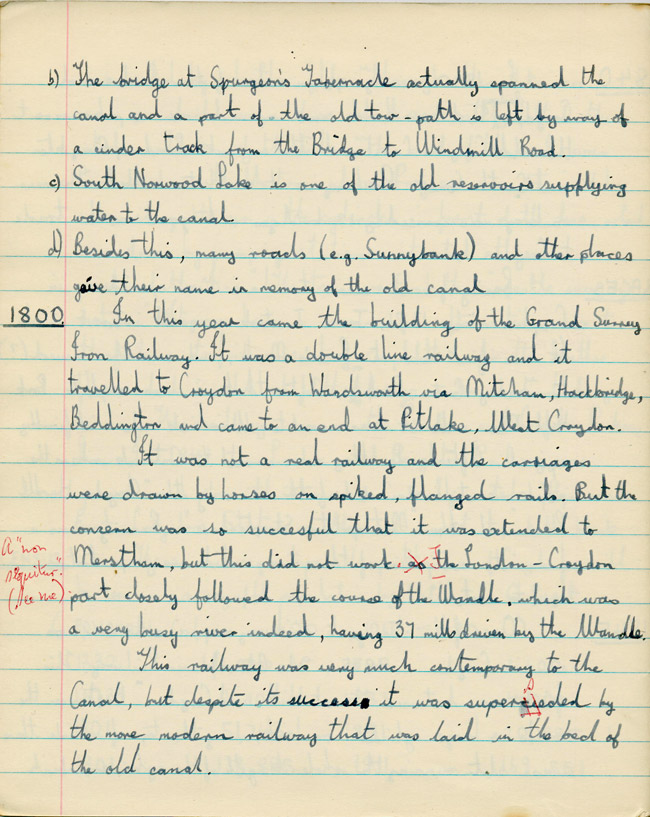 b) The bridge at Spurgeon's Tabernacle actually spanned the
canal and a part of the old tow-path is left by way of
a cinder track from the Bridge to Windmill Road.
c) South Norwood Lake is one of the old reservoirs supplying
water to the canal
d) Besides this, many roads (e.g. Sunnybank) and other places
give their name in memory of the old canal
1800 In this year came the building of the Grand Surrey
Iron Railway. It was a double line railway and it
travelled to Croydon from Wandsworth via Mitcham, Hackbridge,
Beddington and came to an end at Pitlake, West Croydon.
It was not a real railway and the carriages
were drawn by horses on spiked, flanged rails. But the
concern was so succesful that it was extended to
A "non
sequitur."
(see me)
Merstham, but this did not work. as the London - Croydon
part closely followed the course of the Wandle, which was
a very busy river indeed, having 37 mills driven by the Wandle.
This railway was very much contemporary to the
Canal, but despite its success it was superseeded by
the more modern railway that was laid in the bed of
the old canal.